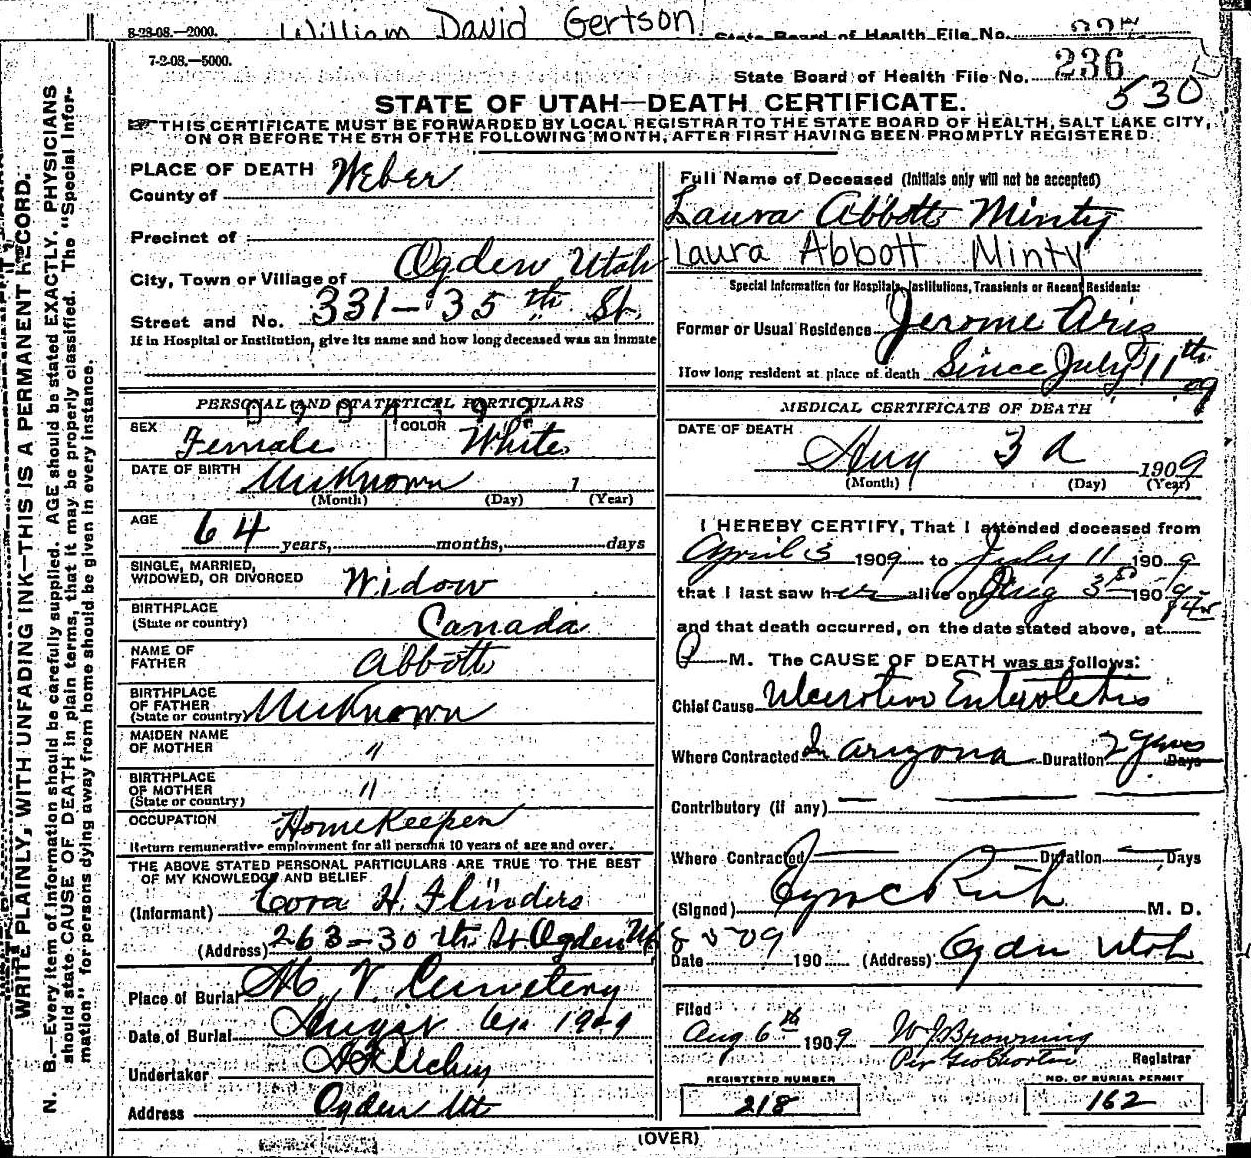 William David Gertson
8-28-08.—2000. State Board of Health File No.
7-2-08.—5000.
State Board of Health File No. 236
530
STATE OF UTAH—DEATH CERTIFICATE.
THIS CERTIFICATE MUST BE FORWARDED BY LOCAL REGISTRAR TO THE STATE BOARD OF HEALTH, SALT LAKE CITY,
ON OR BEFORE THE 5TH OF THE FOLLOWING MONTH, AFTER FIRST HAVING BEEN PROMPTLY REGISTERED.
WRITE PLAINLY, WITH UNFADING INK—THIS IS A PERMANENT RECORD.
N. B.—Every item of information should be carefully supplied. AGE should be stated EXACTLY. PHYSICIANS
should state CAUSE OF DEATH in plain terms, that it may be properly classified. The "Special Infor-
mation" for persons dying away from home should be given in every instance.
PLACE OF DEATH
County of Weber
Precinct of
City, Town or Village of Ogden Utah
Street and No. 331-35th St.
If in Hospital or Institution, give its name and how long deceased was an inmate
PERSONAL AND STATISTICAL PARTICULARS
SEX Female COLOR White
DATE OF BIRTH Unknown 1
(Month) (Day) (Year)
AGE 64 years, months, days
SINGLE, MARRIED,
WIDOWED, OR DIVORCED Widow
BIRTHPLACE
(State or country) Canada
NAME OF
FATHER Abbott
BIRTHPLACE
OF FATHER
(State or country) Unknown
MAIDEN NAME
OF MOTHER "
BIRTHPLACE
OF MOTHER
(State or country) "
OCCUPATION Homekeeper
Return remunerative employment for all persons 10 years of age and over.
THE ABOVE STATED PERSONAL PARTICULARS ARE TRUE TO THE BEST
OF MY KNOWLEDGE AND BELIEF
(Informant) Cora H. Flinders
(Address) 263-30th St Ogden Ut
Place of Burial Mt. V. Cemetery
Date of Burial August 6th 1909
Undertaker
Address Ogden Ut
Full Name of Deceased (Initials only will not be accepted)
Laura Abbott Minty
Laura Abbott Minty
Special Information for Hospitals, Institutions, Transients or Recent Residents:
Former or Usual Residence Jerome Ariz
How long resident at place of death Since July 11th 09
MEDICAL CERTIFICATE OF DEATH
DATE OF DEATH
Aug 3d 1909
(Month) (Day) (Year)
I HEREBY CERTIFY, That I attended deceased from
April 3 1909 to July 11 1909
that I last saw her alive on Aug 3rd 1909
and that death occurred, on the date stated above, at
M. The CAUSE OF DEATH was as follows:
Chief Cause Ulcerative Enterocolitis
Where Contracted In Arizona Duration 2 years Days
Contributory (if any)
Where Contracted Duration Days
(Signed) M. D.
Date 190 (Address) Ogden Utah
Filed
Aug 6th 1909 W J Browning
Per Registrar
REGISTERED NUMBER
218
NO. OF BURIAL PERMIT
162
(OVER)